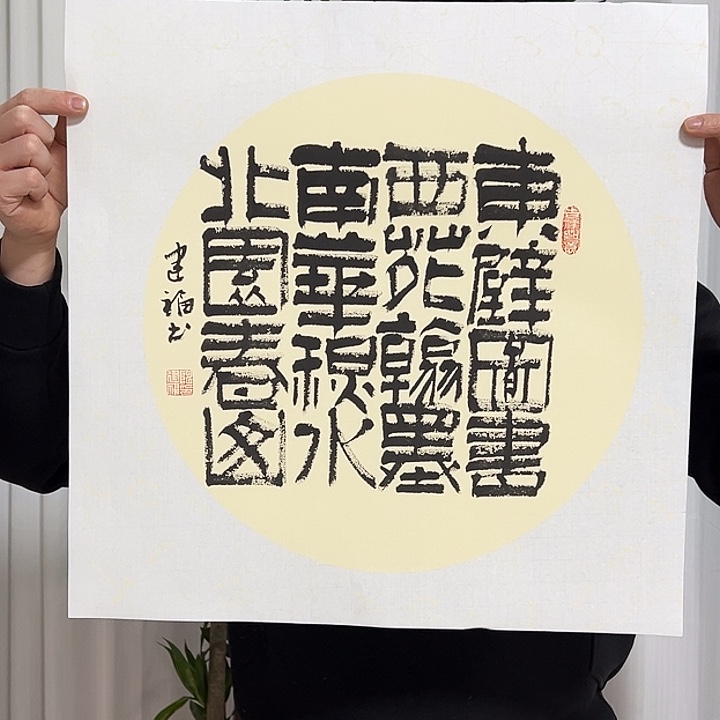 東壁圖書
西苑翰墨
南華秋水
北園春图
建福书